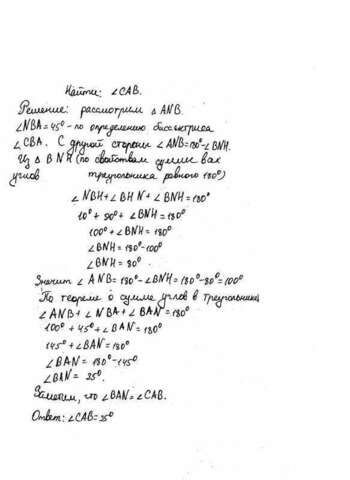 Найти: ∠CAB.
Решение: рассмотрим △ANB.
∠NBA=45° - по определению биссектриса
∠CBA. С другой стороны ∠ANB=180°-∠BNH.
Из △BNH (по свойствам суммы вах
углов треугольника равного 180°)
∠NBH+∠BHN+∠BNH=180°
10°+90°+∠BNH=180°
100°+∠BNH=180°
∠BNH=180°-100°
∠BNH=80°.
Значит ∠ANB=180°-∠BNH=180°-80°=100°
По теореме о сумме углов в треугольнике
∠ANB+∠NBA+∠BAN=180°
100°+45°+∠BAN=180°
145°+∠BAN=180°
∠BAN=180°-145°
∠BAN=35°.
Заметим, что ∠BAN=∠CAB.
Ответ: ∠CAB=35°